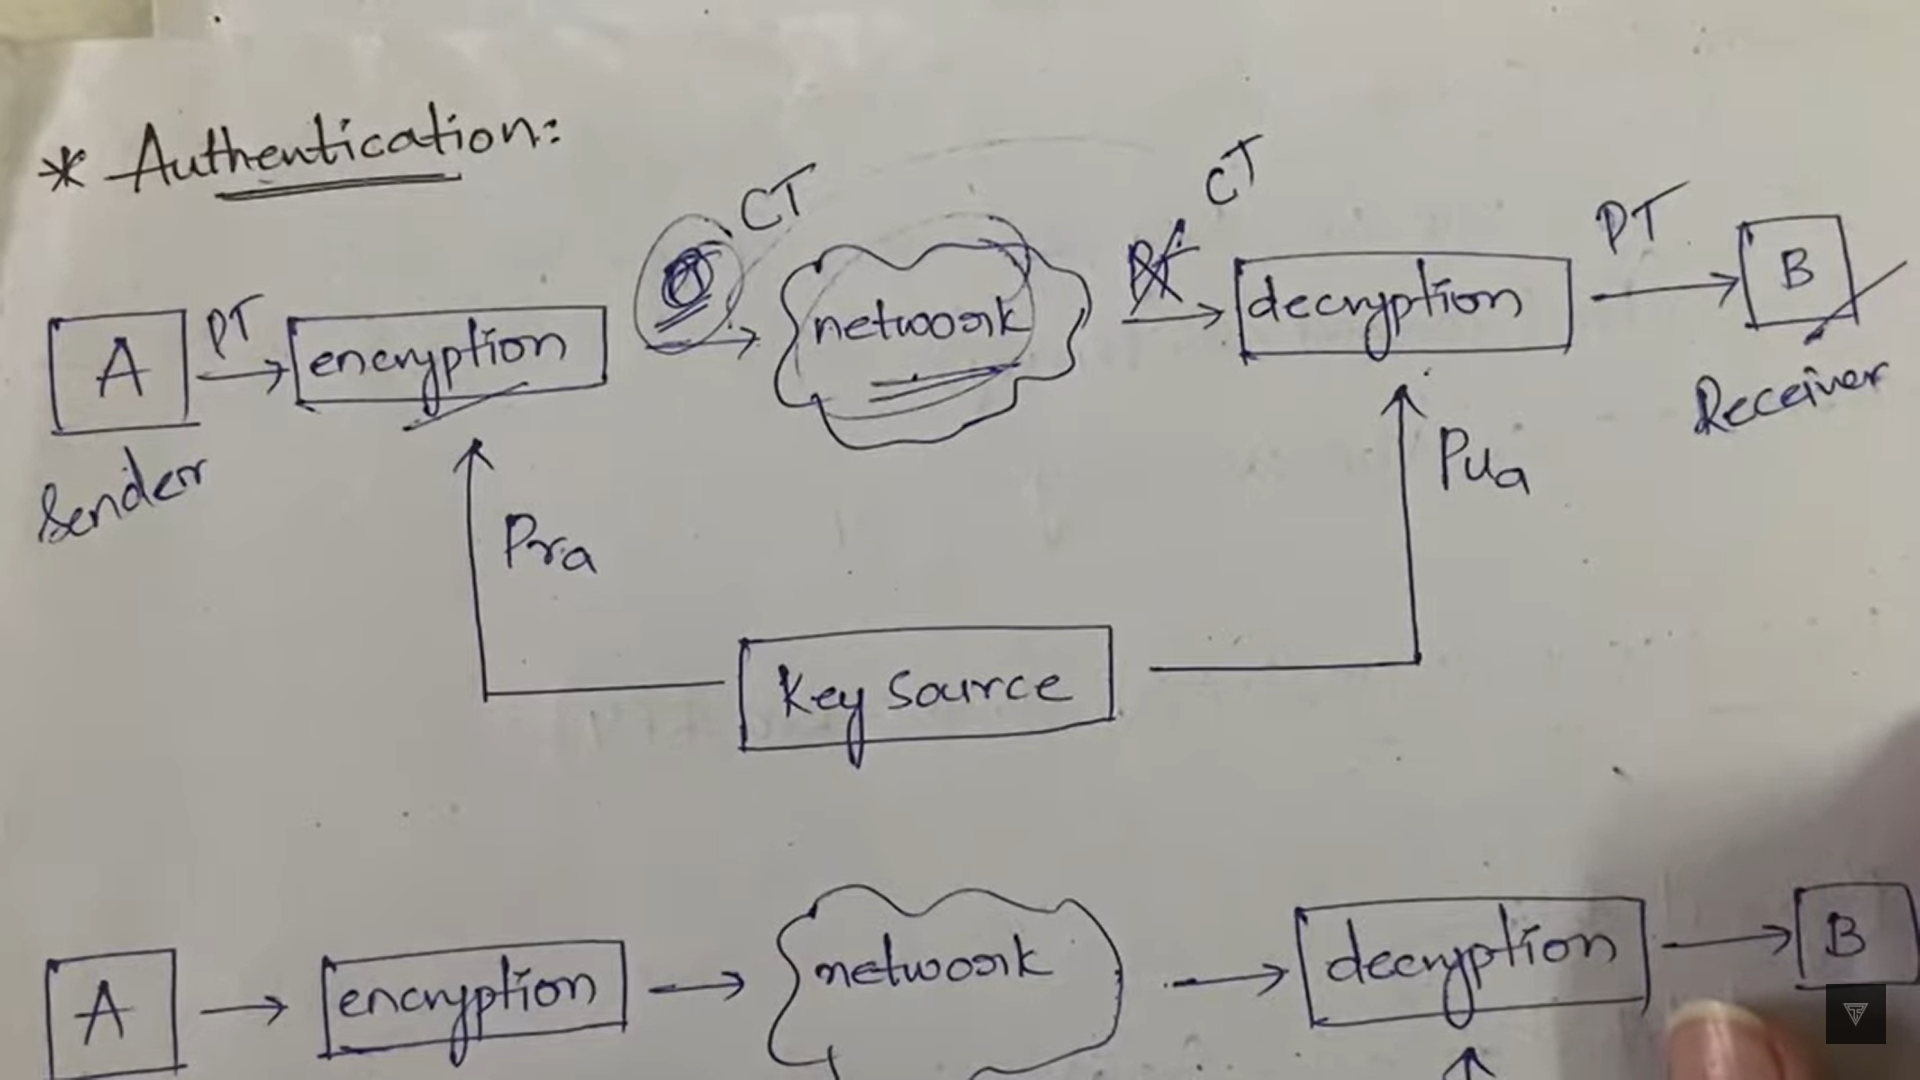 * Authentication:
CT
CT
PT
PT
A
encryption
network
decryption
B
Sender
Receiver
Pra
Pua
Key Source
A
encryption
network
decryption
B